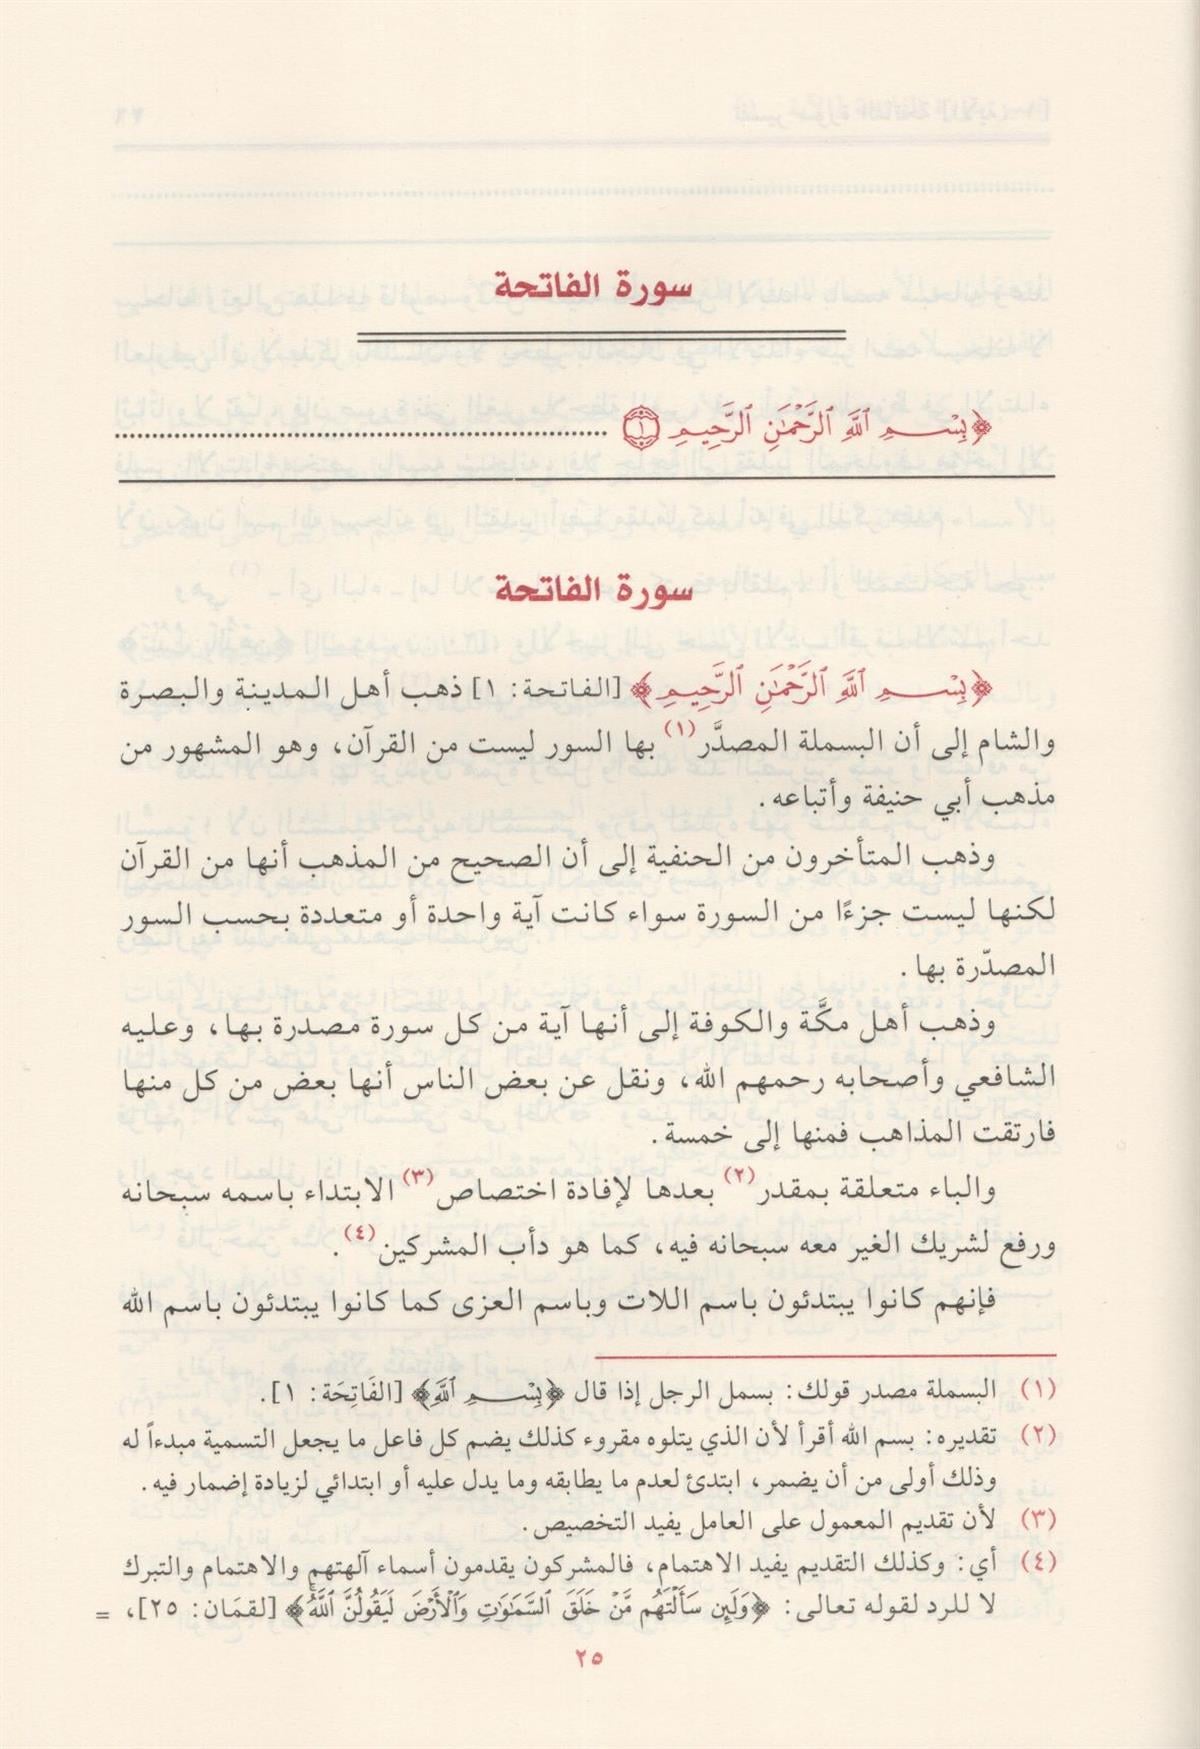 سورة الفاتحة
﴿بِسْمِ ٱللَّهِ ٱلرَّحْمَٰنِ ٱلرَّحِيمِ ١
سورة الفاتحة
﴿بِسْمِ ٱللَّهِ ٱلرَّحْمَٰنِ ٱلرَّحِيمِ﴾ [الفاتحة: ١] ذهب أهل المدينة والبصرة
والشام إلى أن البسملة المصدَّر(١) بها السور ليست من القرآن، وهو المشهور من
مذهب أبي حنيفة وأتباعه.
وذهب المتأخرون من الحنفية إلى أن الصحيح من المذهب أنها من القرآن
لكنها ليست جزءًا من السورة سواء كانت آية واحدة أو متعددة بحسب السور
المصدّرة بها.
وذهب أهل مكَّة والكوفة إلى أنها آية من كل سورة مصدرة بها، وعليه
الشافعي وأصحابه رحمهم الله، ونقل عن بعض الناس أنها بعض من كل منها
فارتقت المذاهب فمنها إلى خمسة.
والباء متعلقة بمقدر(٢) بعدها لإفادة اختصاص(٣) الابتداء باسمه سبحانه
ورفع لشريك الغير معه سبحانه فيه، كما هو دأب المشركين(٤).
فإنهم كانوا يبتدئون باسم اللات وباسم العزى كما كانوا يبتدئون باسم الله
(١) البسملة مصدر قولك: بسمل الرجل إذا قال ﴿بِسْمِ ٱللَّهِ﴾ [الفَاتِحَة: ١].
(٢) تقديره: بسم الله أقرأ لأن الذي يتلوه مقروء كذلك يضم كل فاعل ما يجعل التسمية مبدءاً له
وذلك أولى من أن يضمر، ابتدئ لعدم ما يطابقه وما يدل عليه أو ابتدائي لزيادة إضمار فيه.
(٣) لأن تقديم المعمول على العامل يفيد التخصيص.
(٤) أي: وكذلك التقديم يفيد الاهتمام، فالمشركون يقدمون أسماء آلهتهم والاهتمام والتبرك
لا للرد لقوله تعالى: ﴿وَلَئِن سَأَلْتَهُم مَّنْ خَلَقَ ٱلسَّمَٰوَٰتِ وَٱلْأَرْضَ لَيَقُولُنَّ ٱللَّهُ﴾ [لقمَان: ٢٥]، =
٢٥